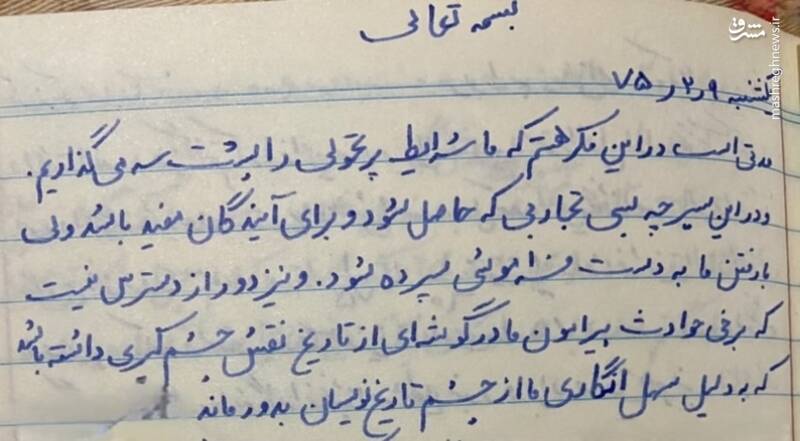 بسمه تعالی
یکشنبه ۷۵/۳/۹
مدتی است در این فکر هستم که ما شرایط پرتحولی را پشت سر می گذاریم.
و در این سیر چه بسی تجاربی که حاصل شود و برای آیندگان مفید باشد ولی
با رفتن ما به دست فراموشی سپرده شود. و نیز دور از دسترس نیست
که برخی حوادث پیرامون ما در گوشه ای از تاریخ نقش چشم گیری داشته باشد
که به دلیل سهل انگاری ما از چشم تاریخ نویسان بدور ماند
مشرق
mashreghnews.ir